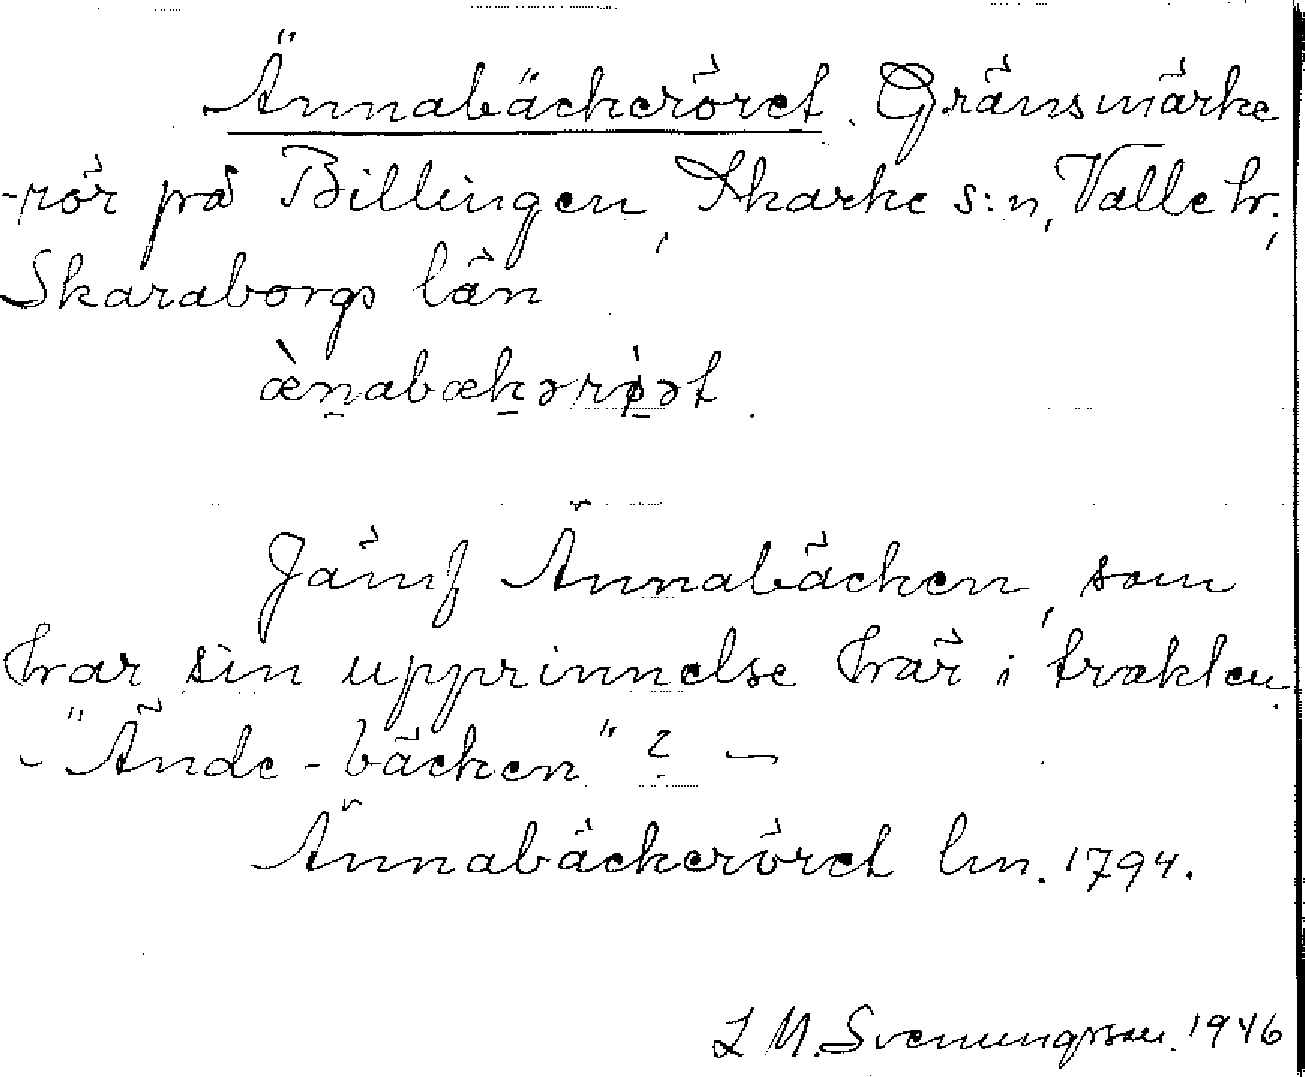 Ännabäckeröret. Gränsmärke
-rör på Billingen, Skarke s:n, Valle hr.,
Skaraborgs län
æ̀n̠abæk̠ərø̠̀ət.
Jämf Ännabäcken, som
har sin upprinnelse här i trakten.
- "Ände-bäcken" ? -
Ännabäckeröret lm. 1794.
L M. Svenungsson. 1946